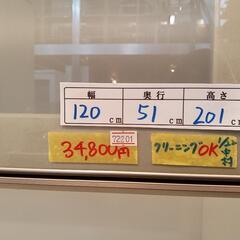 幅 奥行 高さ
120cm 51cm 201cm
22201
34,800円
クリーニングOK
中村